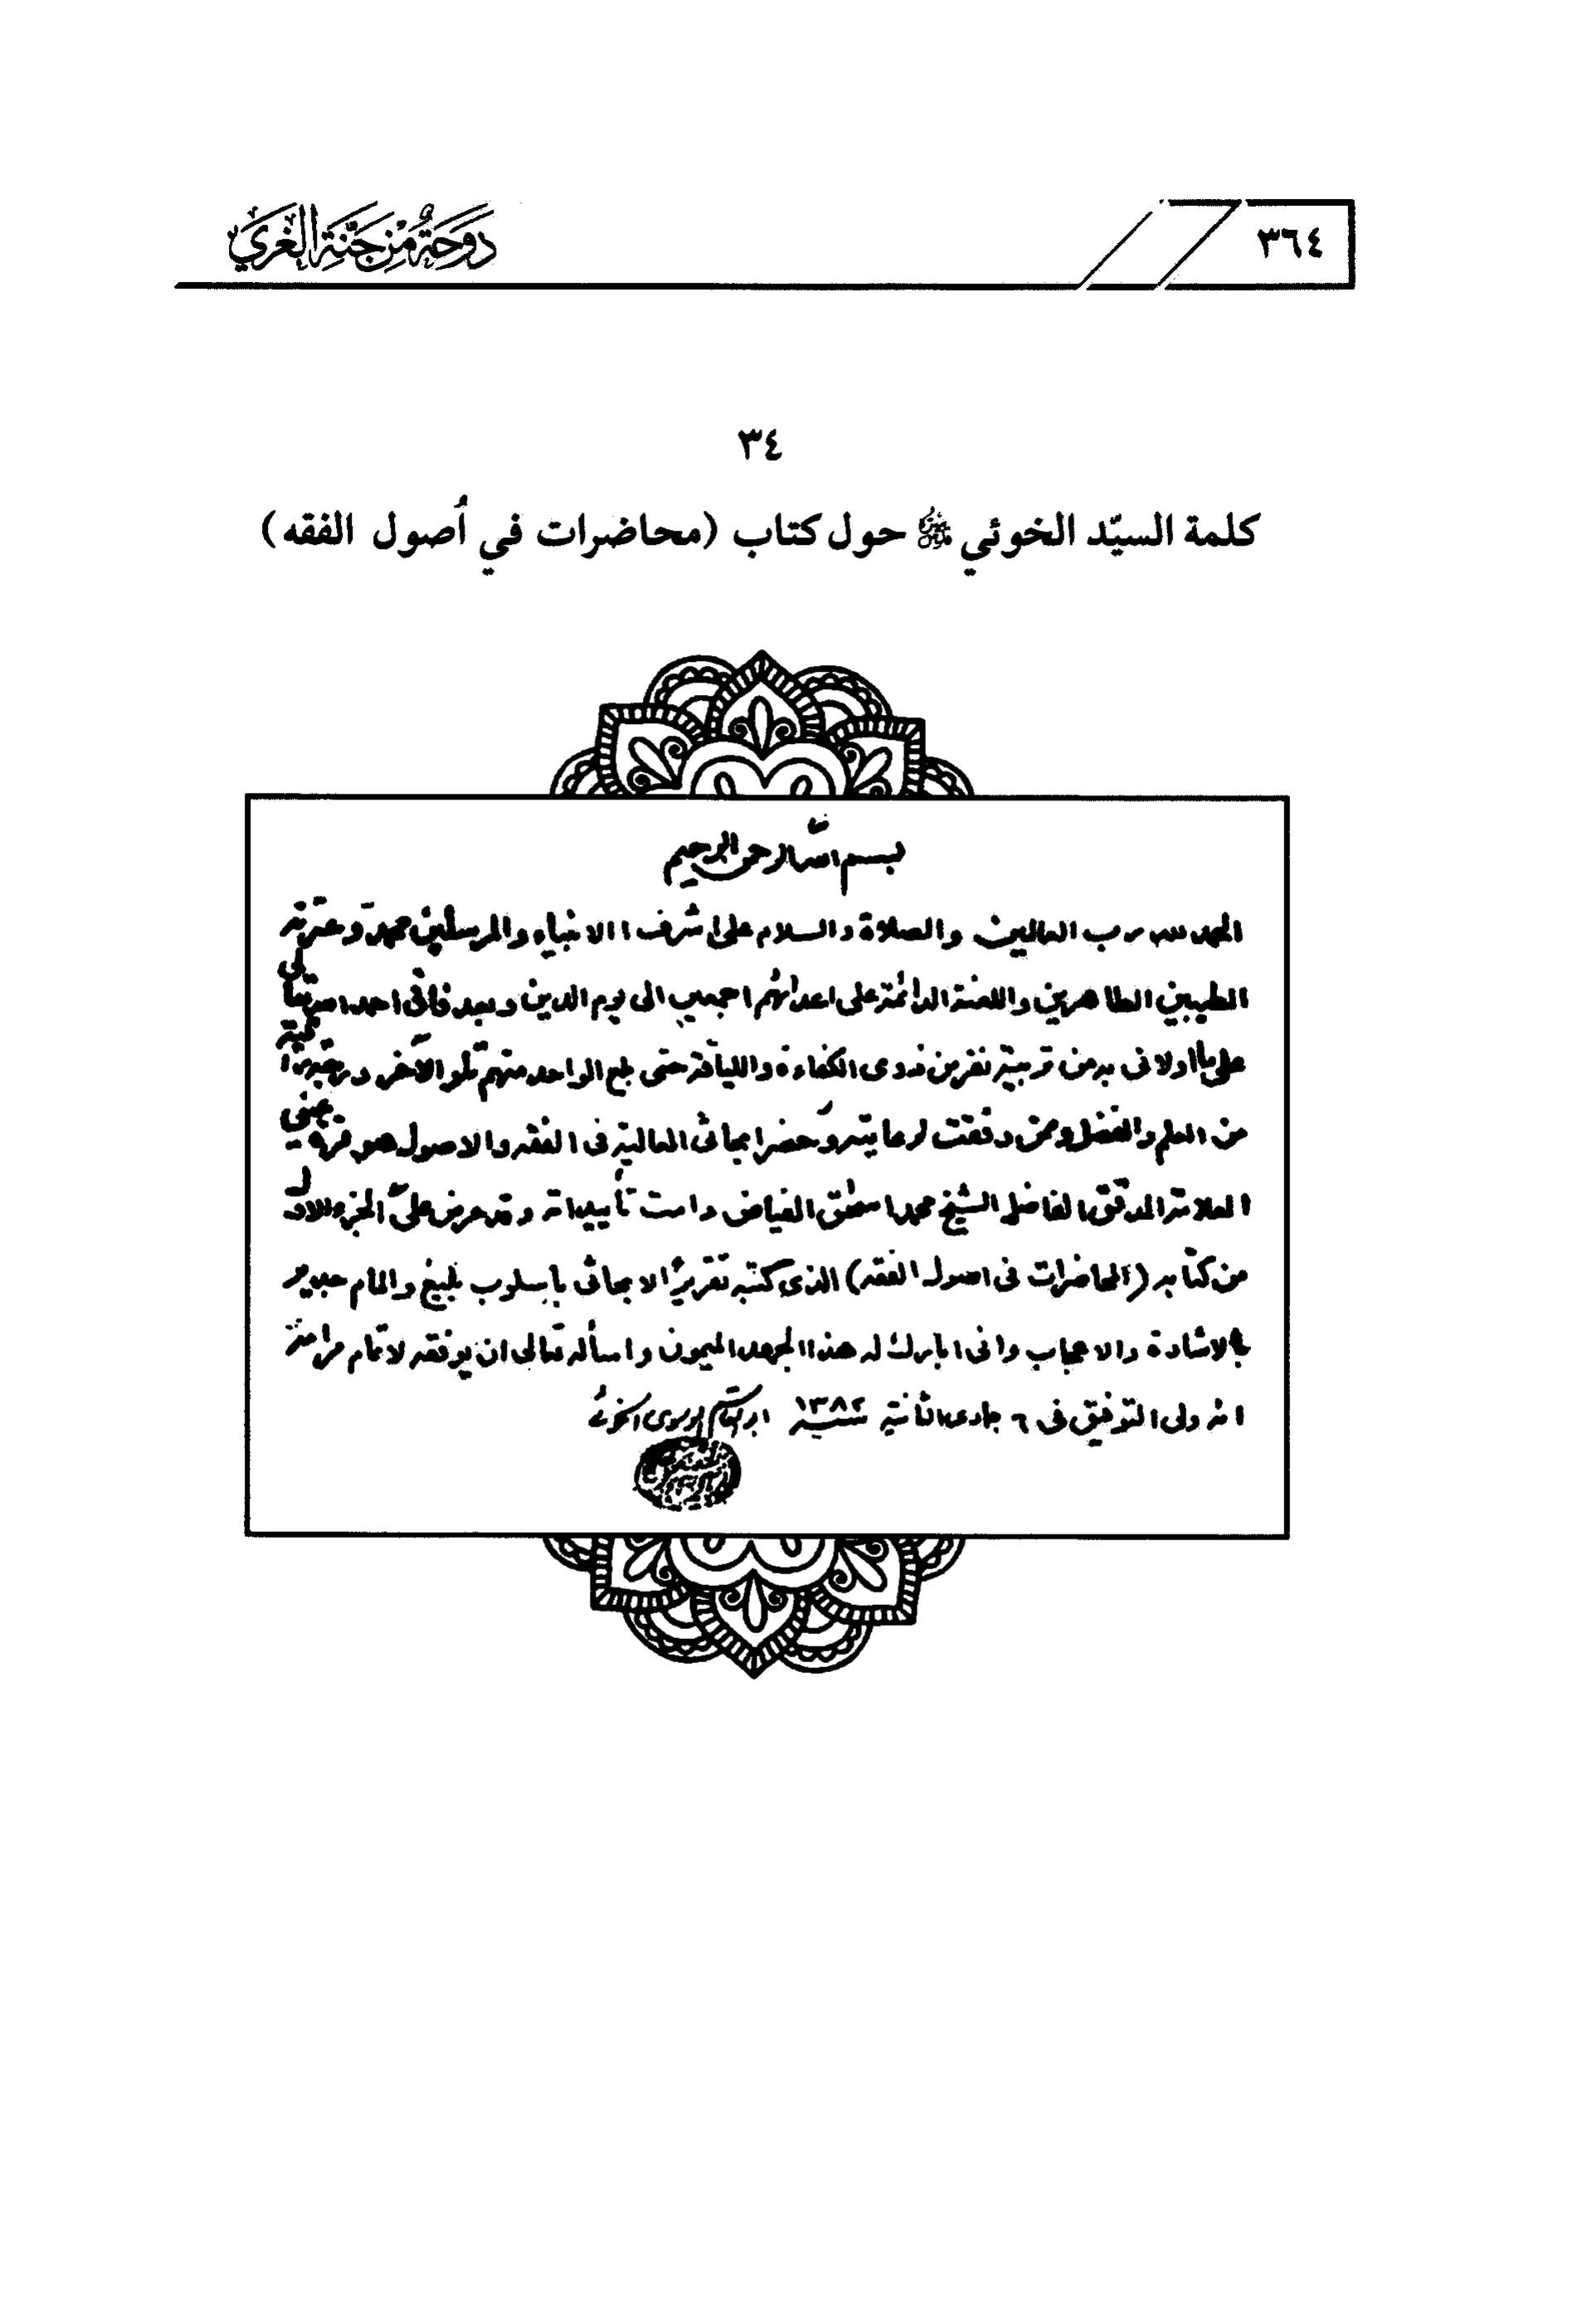 ٣٦٤
دوحة من جنة الغري
٣٤
كلمة السيّد الخوئي حول كتاب (محاضرات في أصول الفقه)
بسم الله الرحمن الرحيم
الحمد لله رب العالمين والصلاة والسلام على اشرف الانبياء والمرسلين محمد وعترته
الطيبين الطاهرين واللعنة الدائمة على اعدائهم اجمعين الى يوم الدين وبعد فانى احمد الله تعالى
على ما اولانى به من تربية نفر من ذوى الكفاءة واللياقة حتى بلغ الواحد منهم تلو الآخر درجة
من العلم والفضل وممن وفقت لرعايته وحضر ابحاثى العالية فى الفقه والاصول هو قرة عينى
العلامة المدقق الفاضل الشيخ محمد اسحاق الفياض دامت تأييداته وقد عرض علىّ الجزء الاول
من كتابه (المحاضرات فى اصول الفقه) الذى كتبه تقريرًا لابحاثى بأسلوب بليغ والمام جدير
بالاشادة والاعجاب وانى ابارك له هذا الجهد الميمون واسأله تعالى ان يوفقه لاتمام مراحله
انه ولى التوفيق فى ٦ جمادى الثانية سنه ١٣٨٢ ابو القاسم الموسوى الخوئى